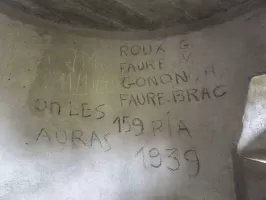 ROUX G
FAURE Y
GONON. A.
FAURE. BRAC
ON LES
AURAS 159 PIA
1939